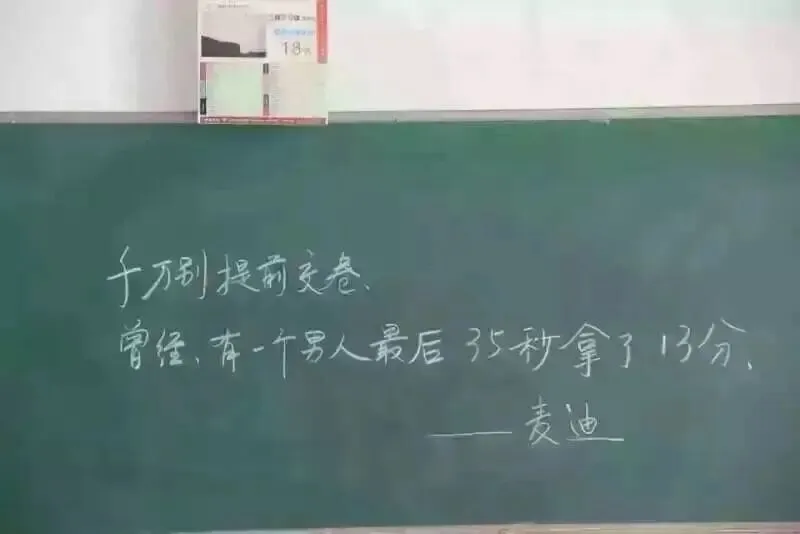 18
千万别提前交卷、
曾经、有一个男人最后35秒拿了13分、
——麦迪